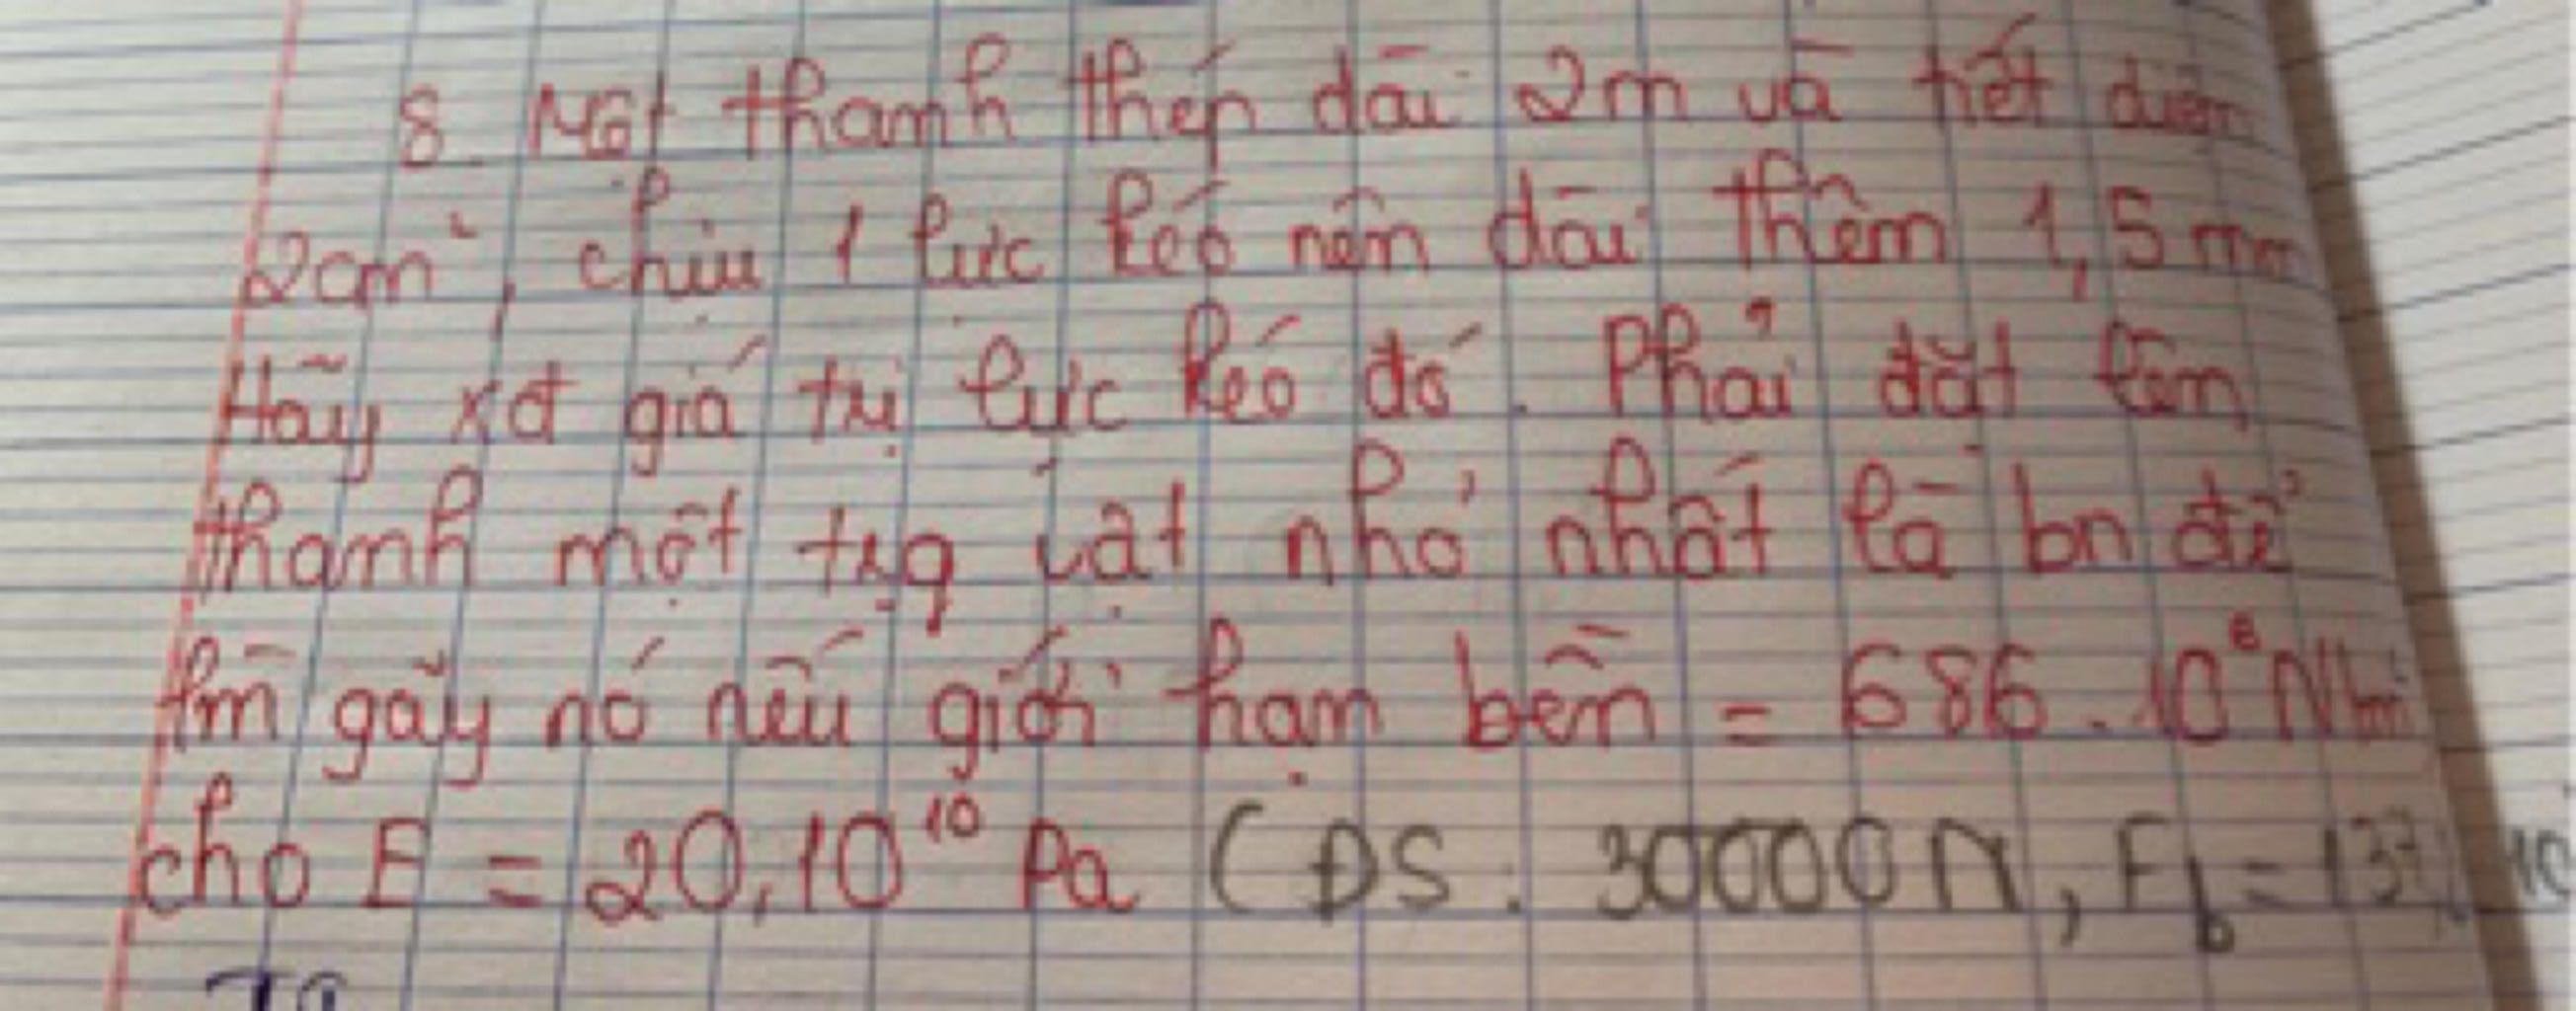 8. Một thanh thép dài 2m và tiết diện
2cm², chịu 1 lực kéo nên dài thêm 1,5mm
Hãy xđ giá trị lực kéo đó. Phải đặt lên
thanh một trọ vật nhỏ nhất là bn để
làm gãy nó nếu giới hạn bền = 686.10⁶ N/m²
cho E = 20,10¹⁰ Pa (ĐS: 30000N, F_b = 137,